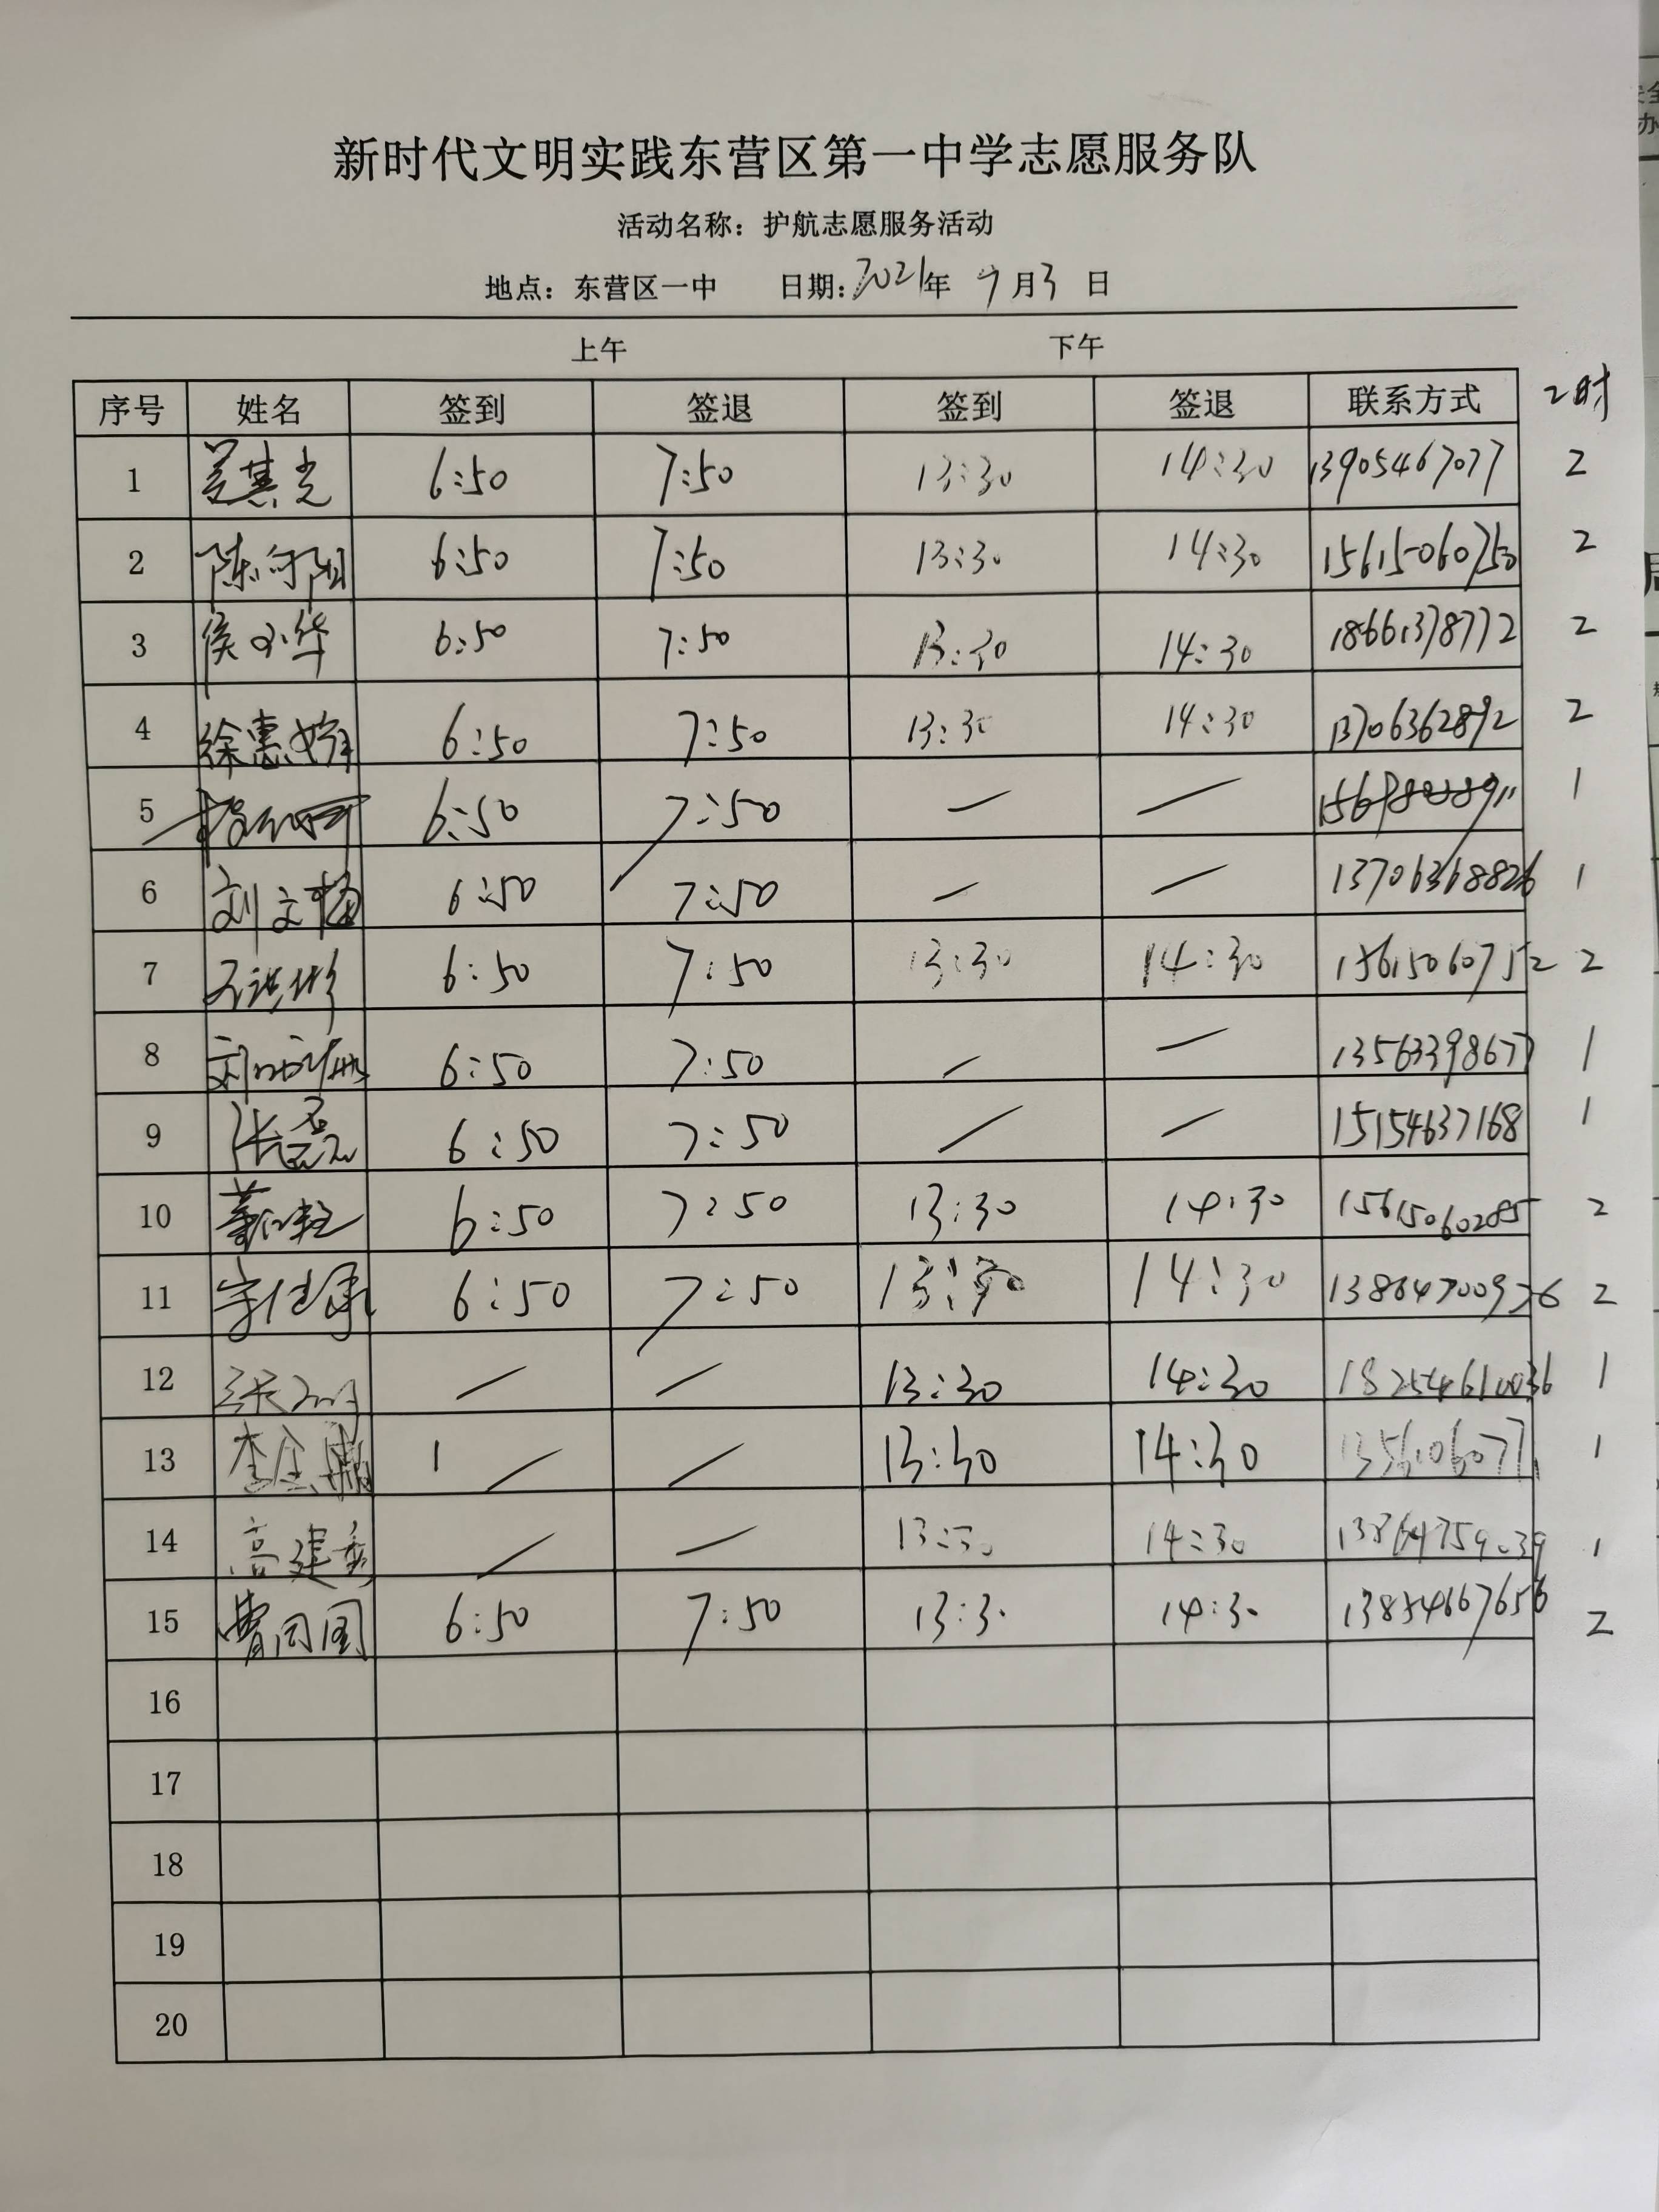 新时代文明实践东营区第一中学志愿服务队
活动名称：护航志愿服务活动
地点：东营区一中 日期：2021年 9月3日
上午 下午
序号 姓名 签到 签退 签到 签退 联系方式 2时
1 其光 6:50 7:50 13:30 14:30 13905467077 2
2 陈向阳 6:50 7:50 13:30 14:30 15615060750 2
3 侯小华 6:50 7:50 13:30 14:30 18661378772 2
4 徐惠婷 6:50 7:50 13:30 14:30 13706362892 2
5 6:50 7:50 — — 1
6 刘文梅 6:50 7:50 — — 1
7 6:50 7:50 13:30 14:30 15615060752 2
8 6:50 7:50 — — 13563398677 1
9 张磊 6:50 7:50 — — 15154637168 1
10 6:50 7:50 13:30 14:30 15615060285 2
11 6:50 7:50 13:30 14:30 2
12 — — 13:30 14:30 1
13 李金 — — 13:30 14:30 1
14 高建秀 — — 13:30 14:30 1
15 曹同国 6:50 7:50 13:30 14:30 13854667656 2
16
17
18
19
20